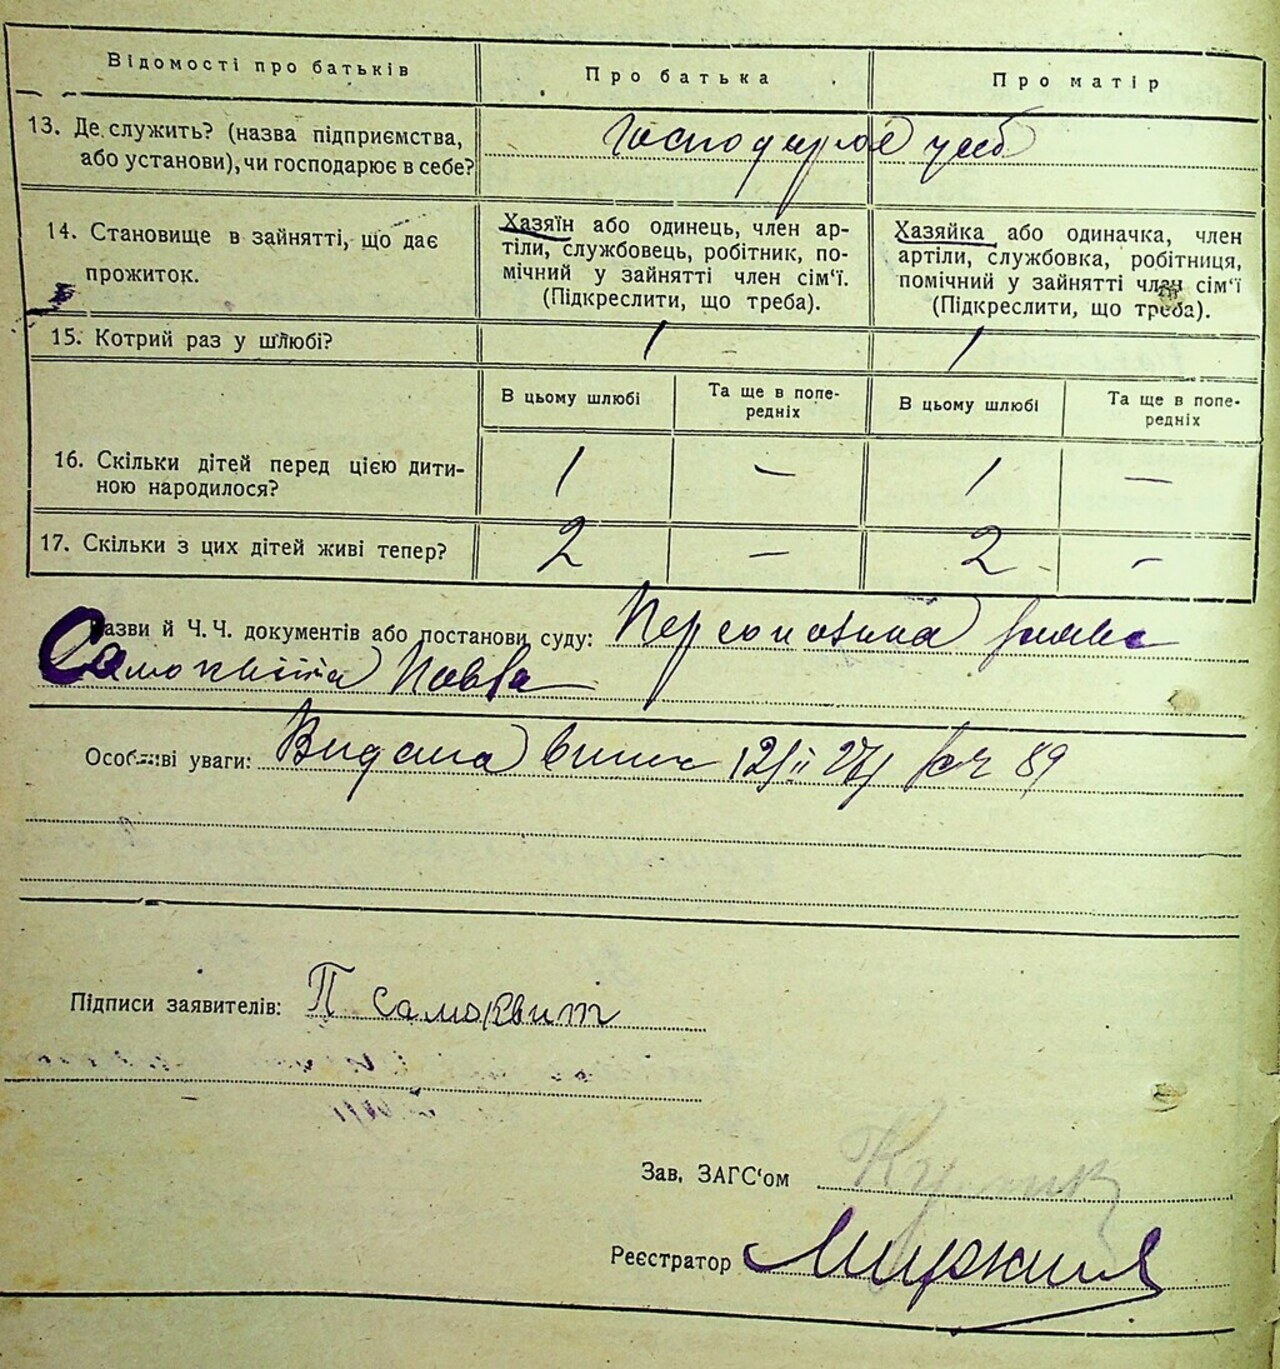 Відомості про батьків Про батька Про матір
13. Де служить? (назва підприємства, або установи), чи господарює в себе?
Господарює у себе
14. Становище в зайнятті, що дає прожиток.
Хазяїн або одинець, член ар-
тіли, службовець, робітник, по-
мічний у зайнятті член сім‘ї.
(Підкреслити, що треба).
Хазяйка або одиначка, член
артіли, службовка, робітниця,
помічний у зайнятті член сім‘ї
(Підкреслити, що треба).
15. Котрий раз у шлюбі? 1 1
В цьому шлюбі Та ще в попе-
редніх В цьому шлюбі Та ще в попе-
редніх
16. Скільки дітей перед цією дити-
ною народилося? 1 — 1 —
17. Скільки з цих дітей живі тепер? 2 — 2 -
Назви й Ч. Ч. документів або постанови суду: Персональна заява
Самоквіта Павла
Особливі уваги: Видана 12/II 27 89
Підписи заявителів: П Самоквит
Зав. ЗАГС‘ом
Реєстратор